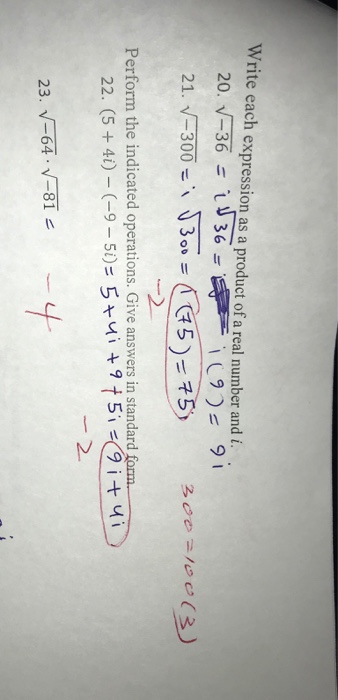 Write each expression as a product of a real number and i.
20. √-36 = i√36 = i(9) = 9i
21. √-300 = i√300 = i(75) = 75i
-2
300=100(3)
Perform the indicated operations. Give answers in standard form.
22. (5 + 4i) − (−9 − 5i) = 5+4i+9+5i = 9i+4i
-2
23. √-64 · √-81 =
-4